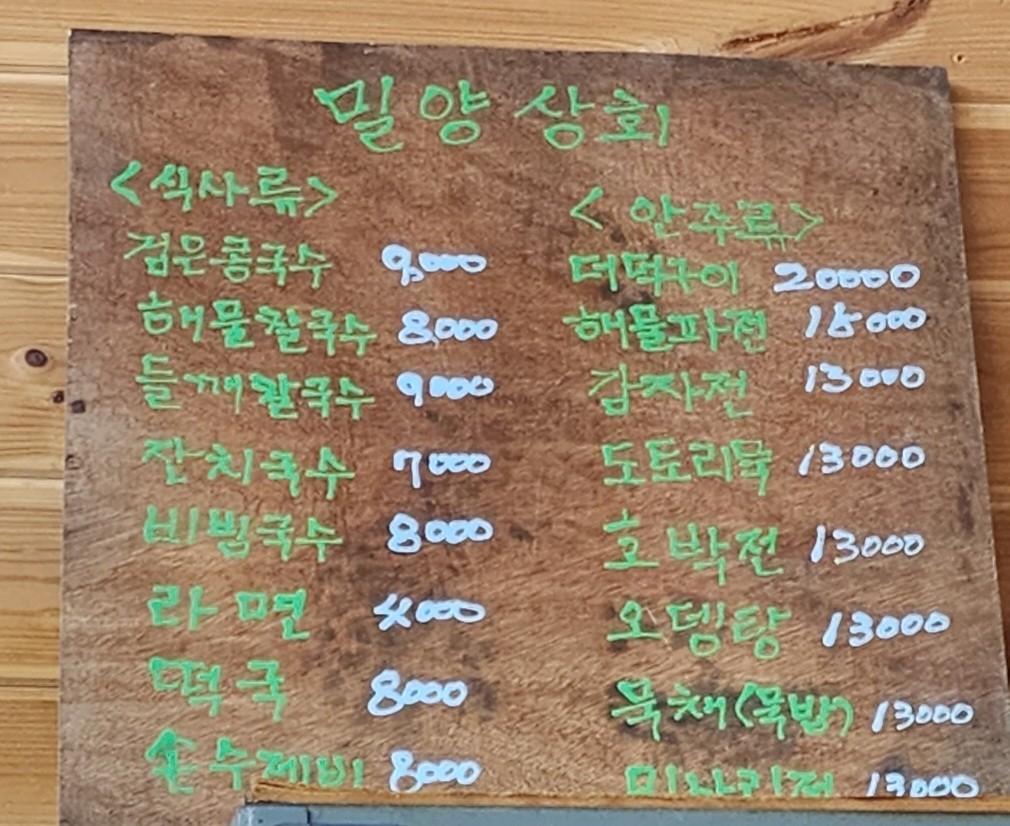 밀양상회
<식사류>
검은콩국수 9,000
해물칼국수 8,000
들깨칼국수 9000
잔치국수 7000
비빔국수 8000
라면 4000
떡국 8000
손수제비 8000
<안주류>
더떡구이 20000
해물파전 15000
감자전 13000
도토리묵 13000
호박전 13000
오뎅탕 13000
묵채(묵밥) 13000
미나리전 13000